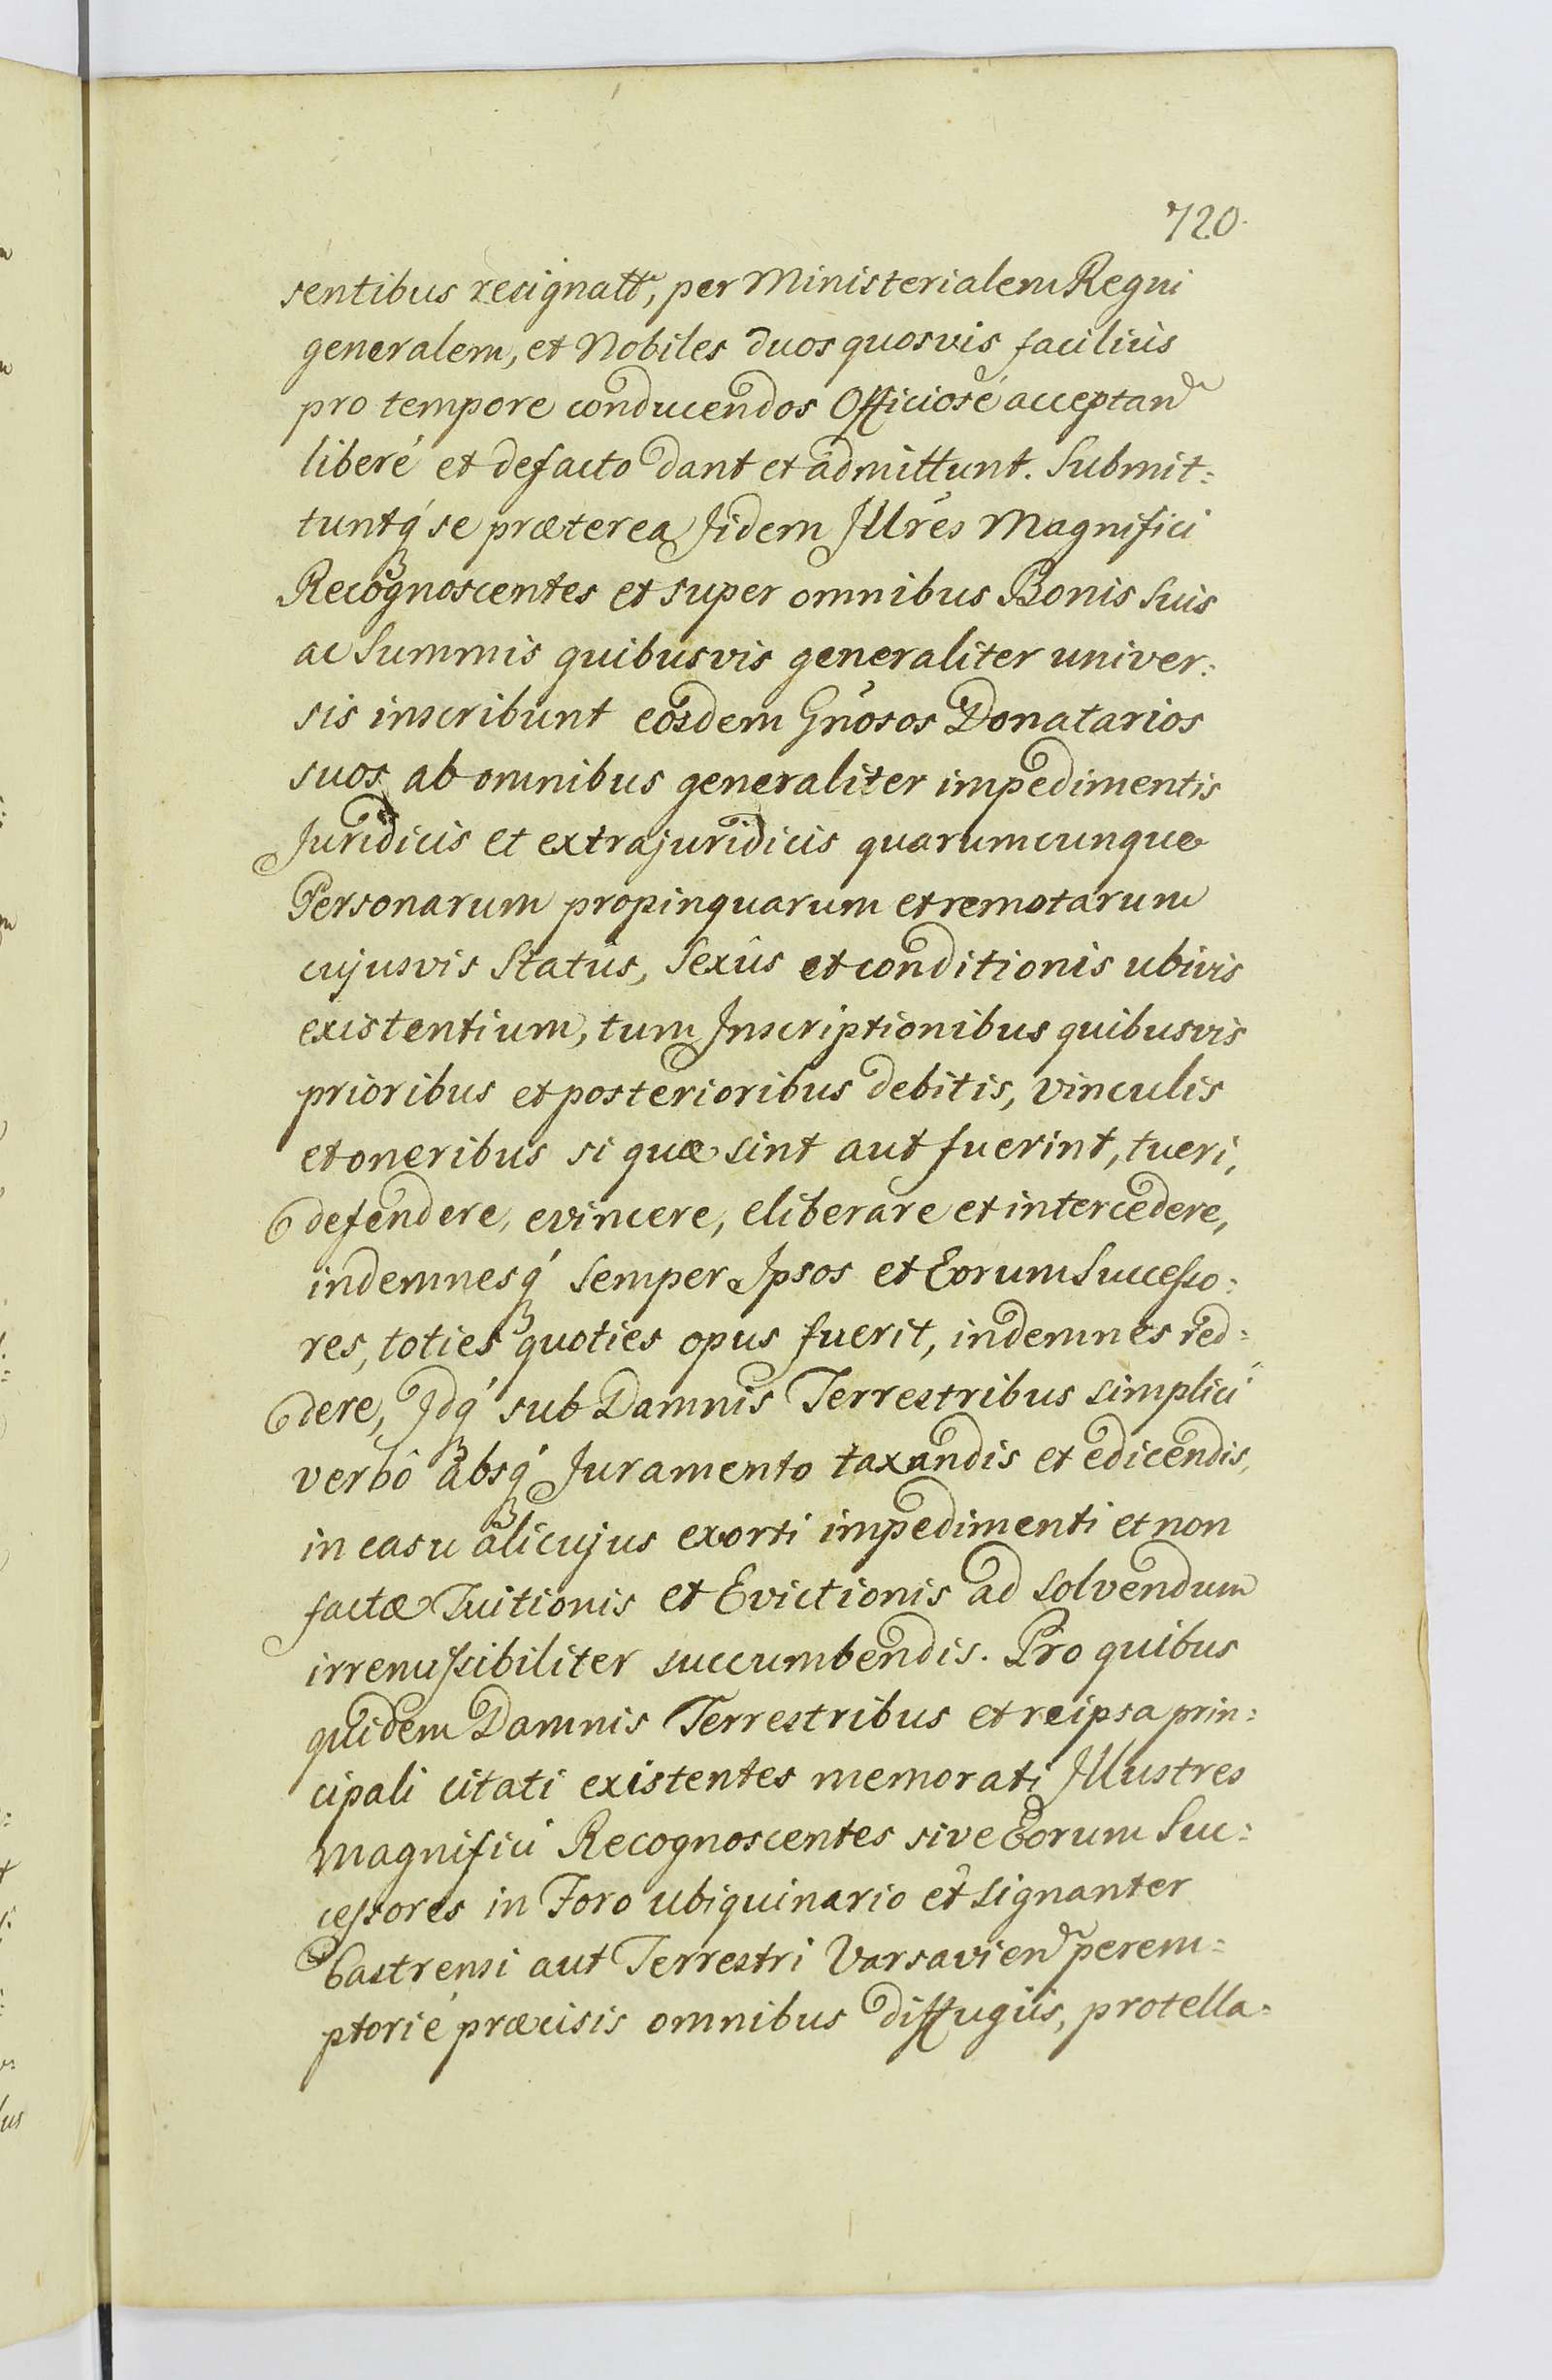 720.
sentibus resignatt, per Ministerialem Regni
generalem, et Nobiles duos quosvis faciliùs
pro tempore conducendos Officiosé acceptan
liberé et defacto dant et admittunt. Submit:
tuntq́ se præterea Jidem Jllres Magnifici
Recognoscentes et super omnibus Bonis Suis
ac Summis quibusvis generaliter univer:
sis inscribunt eosdem Gnosos Donatarios
suos ab omnibus generaliter impedimentis
Juridicis et extrajuridicis quarumcunque
Personarum propinquarum et remotarum
cujusvis Statûs, Sexûs et conditionis ubivis
existentium, tum Jnscriptionibus quibusvis
prioribus et posterioribus debitis, vinculis
et oneribus si quæ sint aut fuerint, tueri,
defendere, evincere, eliberare et intercedere,
indemnesq́ semper Jpsos et Eorum Successo:
res, toties quoties opus fuerit, indemnes red:
dere, Jdq́ sub Damnis Terrestribus simplici
verbô absq́ Juramento taxandis et edicendis,
in casu alicujus exorti impedimenti et non
factæ Tuitionis et Evictionis ad solvendum
irremissibiliter succumbendis. Pro quibus
quidem Damnis Terrestribus et reipsa prin:
cipali citati existentes memorati Jllustres
Magnifici Recognoscentes sive Eorum Suc:
cessores in Foro ubiquinario et signanter
Castrensi aut Terrestri Varsavien perem:
ptorié præcisis omnibus diffugiis, protella: